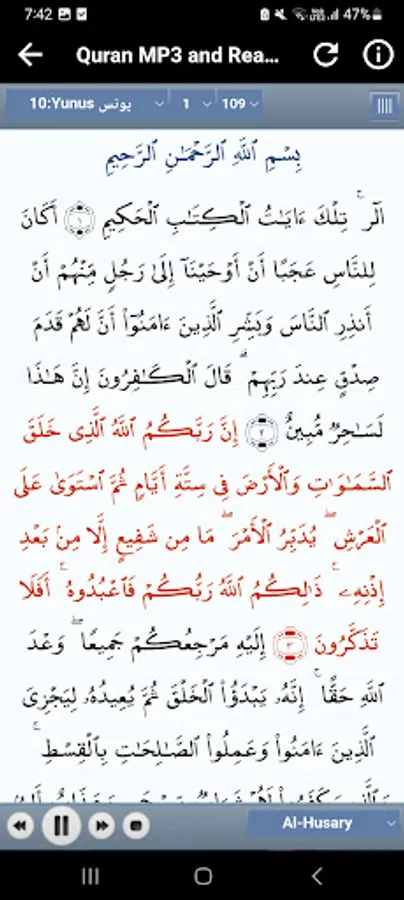 7:42 47%
Quran MP3 and Rea...
10:Yunus يونس 1 109
بِسْمِ ٱللَّهِ ٱلرَّحْمَٰنِ ٱلرَّحِيمِ
الٓر ۚ تِلْكَ ءَايَٰتُ ٱلْكِتَٰبِ ٱلْحَكِيمِ ۝١ أَكَانَ
لِلنَّاسِ عَجَبًا أَنْ أَوْحَيْنَآ إِلَىٰ رَجُلٍ مِّنْهُمْ أَنْ
أَنذِرِ ٱلنَّاسَ وَبَشِّرِ ٱلَّذِينَ ءَامَنُوٓا۟ أَنَّ لَهُمْ قَدَمَ
صِدْقٍ عِندَ رَبِّهِمْ ۗ قَالَ ٱلْكَٰفِرُونَ إِنَّ هَٰذَا
لَسَٰحِرٌ مُّبِينٌ ۝٢ إِنَّ رَبَّكُمُ ٱللَّهُ ٱلَّذِى خَلَقَ
ٱلسَّمَٰوَٰتِ وَٱلْأَرْضَ فِى سِتَّةِ أَيَّامٍ ثُمَّ ٱسْتَوَىٰ عَلَى
ٱلْعَرْشِ ۖ يُدَبِّرُ ٱلْأَمْرَ ۖ مَا مِن شَفِيعٍ إِلَّا مِنۢ بَعْدِ
إِذْنِهِۦ ۚ ذَٰلِكُمُ ٱللَّهُ رَبُّكُمْ فَٱعْبُدُوهُ ۚ أَفَلَا
تَذَكَّرُونَ ۝٣ إِلَيْهِ مَرْجِعُكُمْ جَمِيعًا ۖ وَعْدَ
ٱللَّهِ حَقًّا ۚ إِنَّهُۥ يَبْدَؤُا۟ ٱلْخَلْقَ ثُمَّ يُعِيدُهُۥ لِيَجْزِىَ
ٱلَّذِينَ ءَامَنُوا۟ وَعَمِلُوا۟ ٱلصَّٰلِحَٰتِ بِٱلْقِسْطِ ۚ
Al-Husary